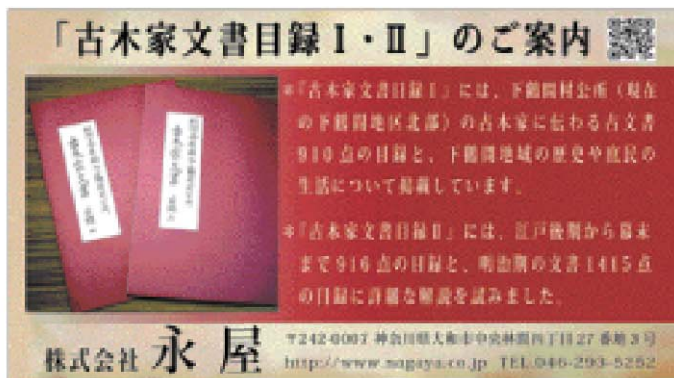 「古木家文書目録Ⅰ・Ⅱ」のご案内
※『古木家文書目録Ⅰ』には、下鶴間村公所（現在
の下鶴間地区北部）の古木家に伝わる古文書
910点の目録と、下鶴間地域の歴史や庶民の
生活について掲載しています。
※『古木家文書目録Ⅱ』には、江戸後期から幕末
まで916点の目録と、明治期の文書1415点
の目録に詳細な解説を試みました。
株式会社 永屋
〒242-0007 神奈川県大和市中央林間四丁目27番地3号
http://www.nagaya.co.jp TEL.046-293-5252